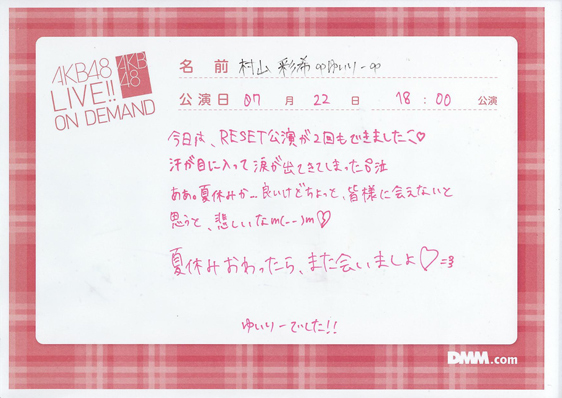 AKB48
LIVE!!
ON DEMAND
AKB
48
名 前 村山 彩希 ゆいりー
公演日 07 月 22 日 18:00 公演
今日は、RESET公演が2回もできました♡
汗が目に入って涙が出てきてしまった泣
ああ。夏休みか…良いけどちょっと、皆様に会えないと
思うと、悲しいなm(--)m♡
夏休みおわったら、また会いましょ♡=3
ゆいりーでした!!
DMM.com